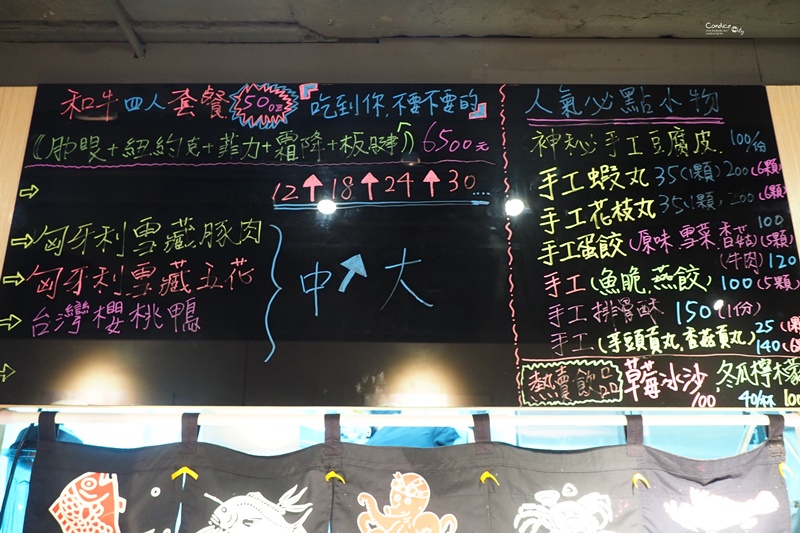 Candice City
和牛四人套餐 50oz 吃到你不要不要的
(肋眼+紐約克+菲力+霜降+板腱) 6500元
12↑18↑24↑30....
匈牙利雪藏豚肉
匈牙利雪藏五花
台灣櫻桃鴨
中↗大
人氣必點小物
神秘手工豆腐皮. 100/份
手工蝦丸 35(1顆) 200(6顆)
手工花枝丸 35(1顆) 200(6顆)
手工蛋餃(原味.雪菜.香菇) 100(5顆)
(牛肉) 120
手工(魚脆.燕餃) 100(5顆)
手工排骨酥 150(1份)
手工(芋頭貢丸.香菇貢丸) 25(1顆) 140(6顆)
熱賣飲品 草莓冰沙 /100 冬瓜檸檬 40/杯 100